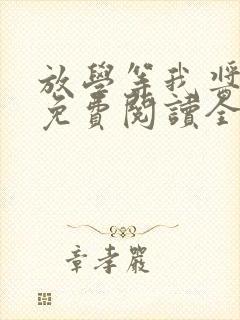 放學等我 將
免費閱讀全
章孝嚴